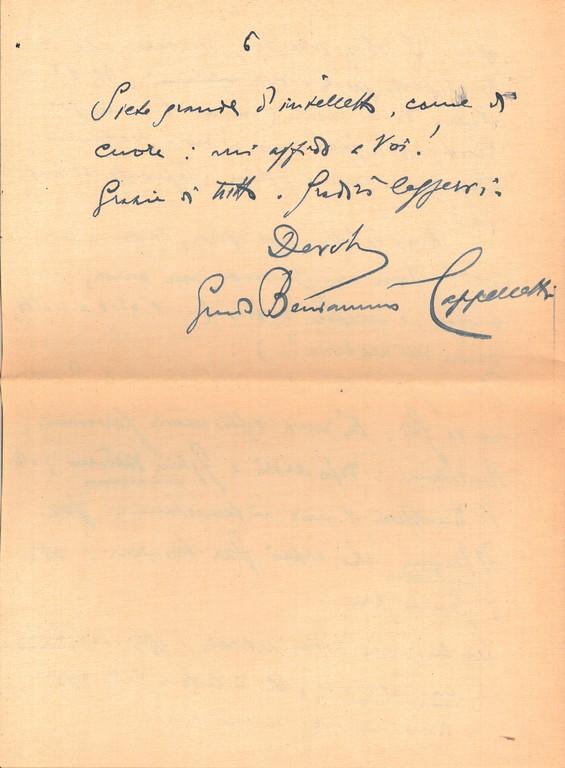 6
Siete grande d'intelletto, come di
cuore: mi affido a Voi!
Grazie di tutto. Gradirò leggervi.
Devoto
Guido Beniamino Cappelletti